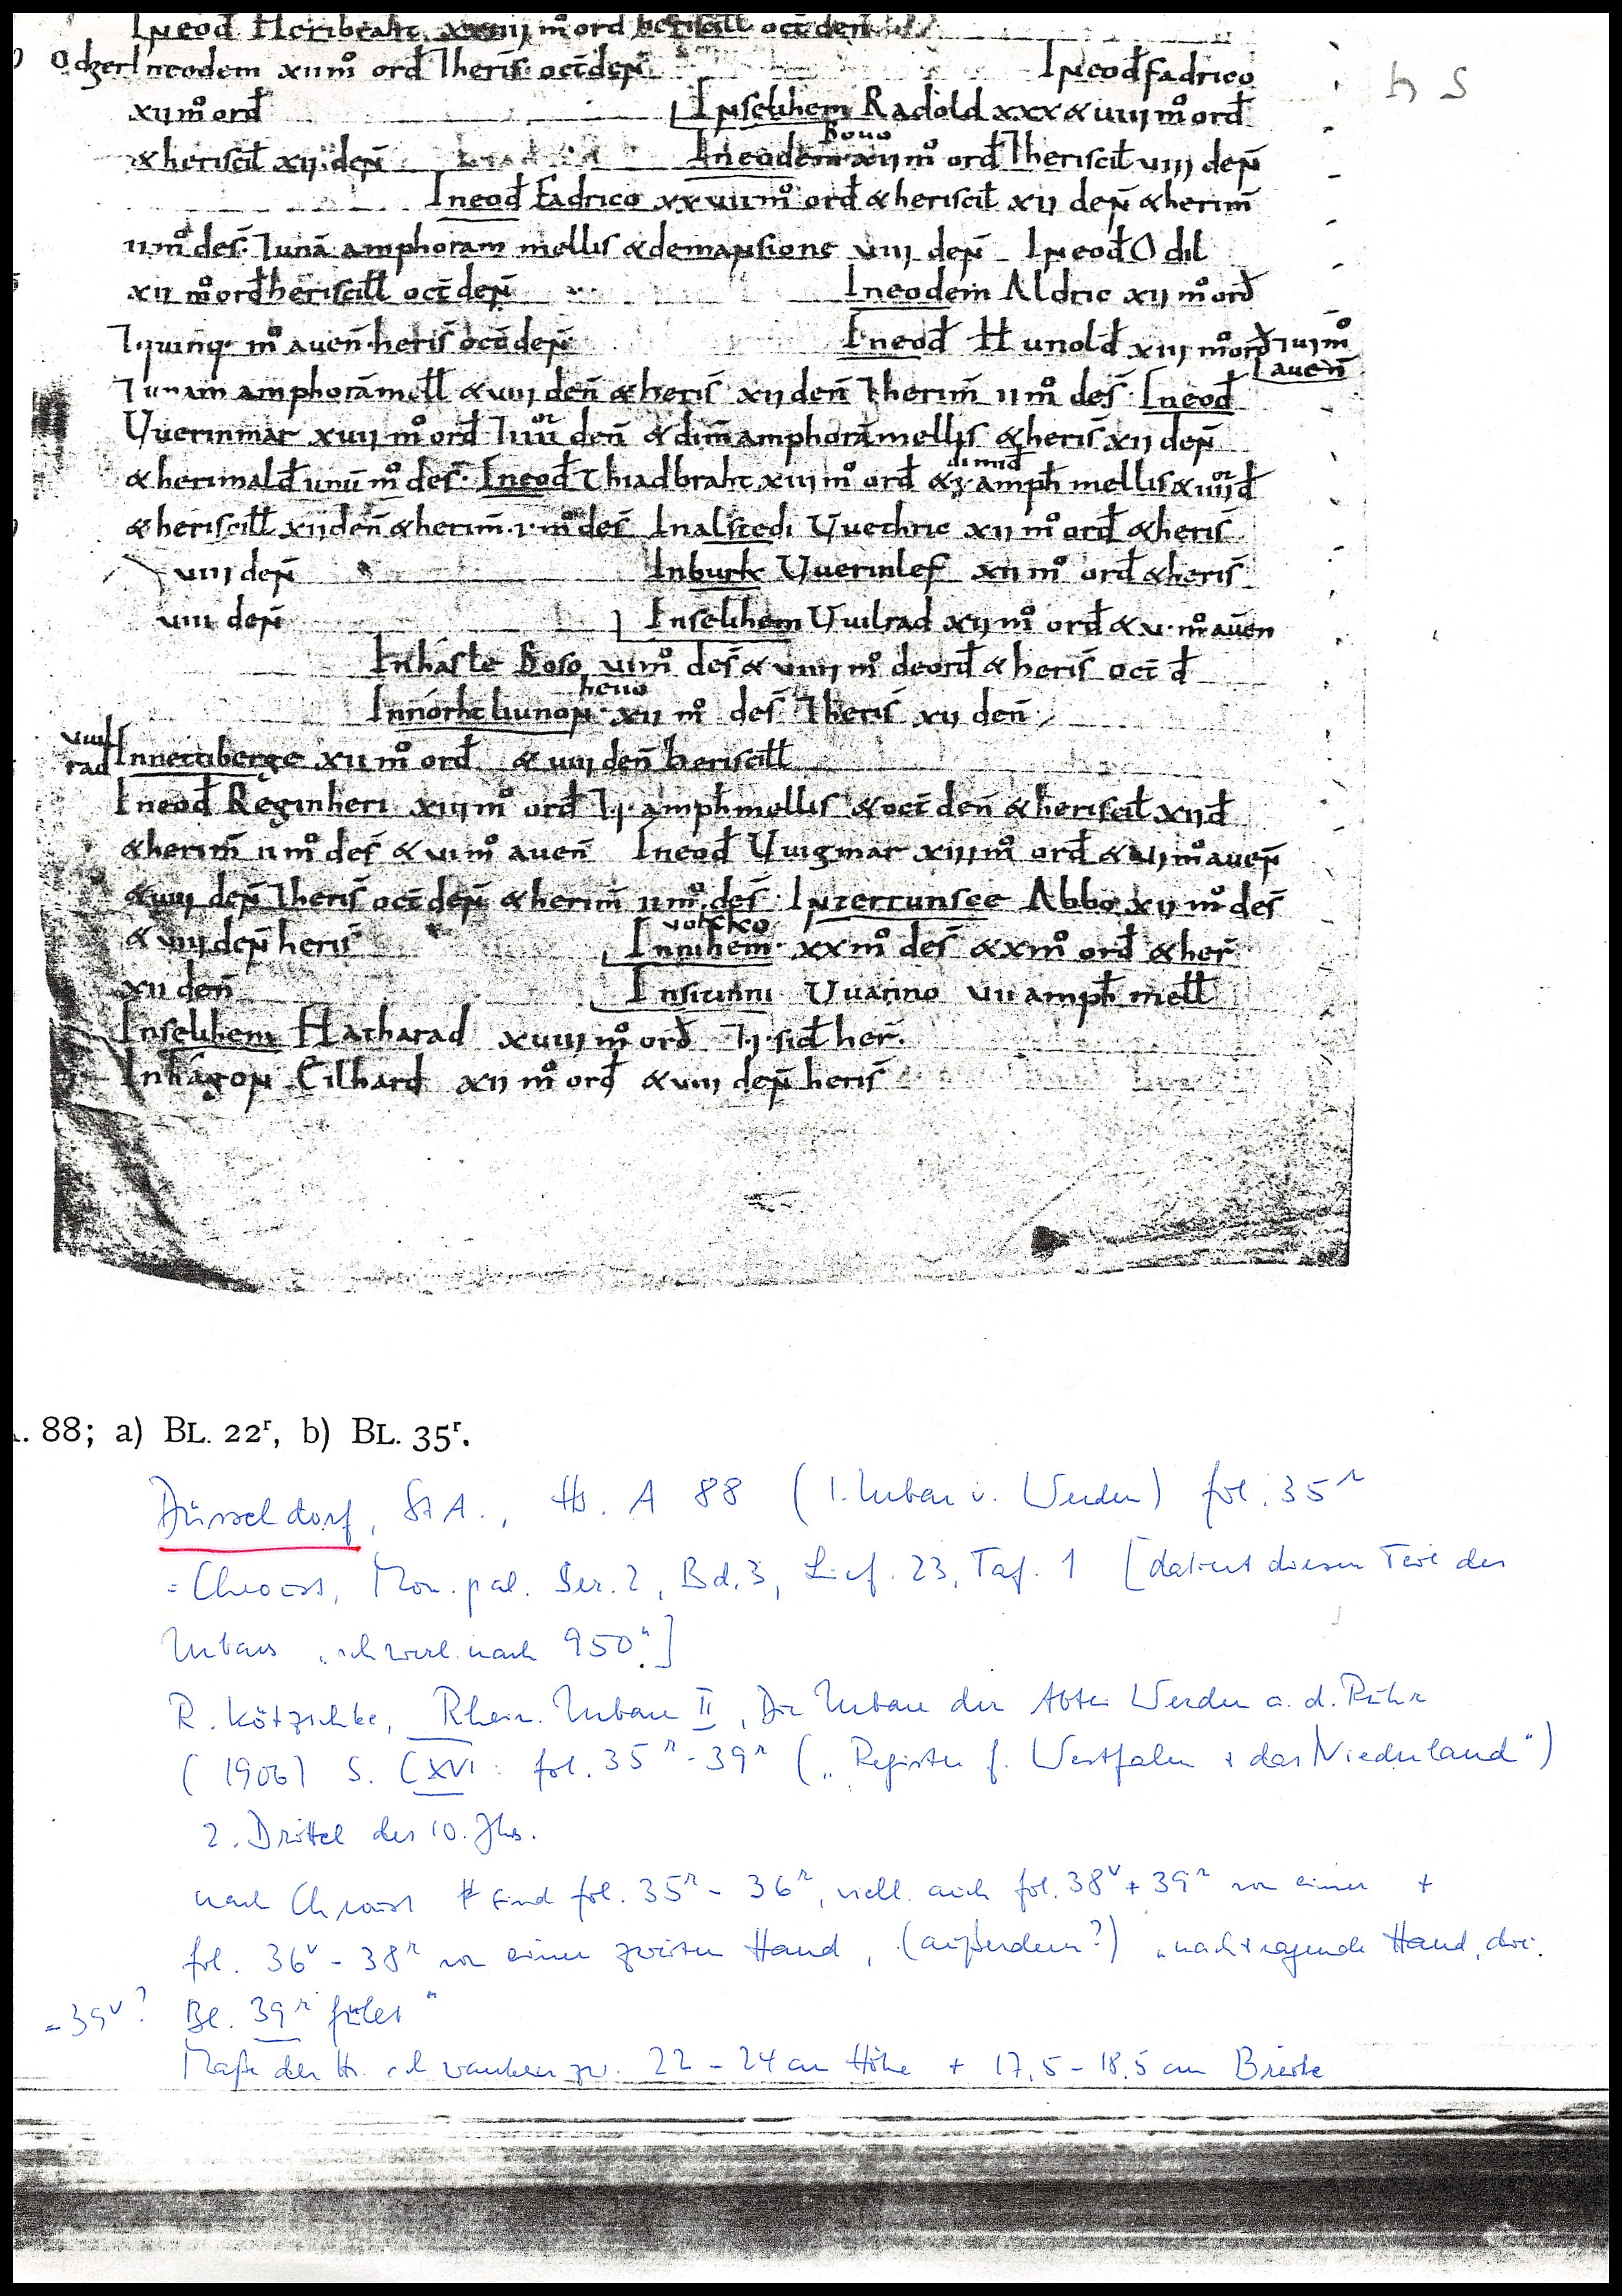 Ineod̄ Heribraht xxiiii mͦ ord heriscill oct̄ den̄
Odger Ineodem xii mͦ ord̄ ⁊heris̄ oct̄ den̄ Ineod̄ fadrico
xii mͦ ord̄ Inselihem Radold xxx & uiiii mͦ ord̄
& heriscil̄ xii den̄ Ineodem Bouo xii mͦ ord̄ ⁊heriscil̄ uiii den̄
Ineod̄ Fadrico xxuii mͦ ord̄ & heriscil̄ xii den̄ & herim̄
ii mͦ des̄ ⁊unā amphoram mellis & demansione uiii den̄ Ineod̄ Odil
xii mͦ ord̄ heriscill̄ oct̄ den̄ Ineodem Aldric xii mͦ ord̄
⁊quinq· mͦ auen̄ heris̄ oct̄ den̄ Ineod̄ Hunold̄ xiii mͦ ord̄ ⁊ui mͦ
auen̄
⁊unam amphorā mell̄ & uiii den̄ & heris̄ xii den̄ ⁊herim̄ ii mͦ des̄· Ineod̄
Uuerinmar xuii mͦ ord̄ ⁊iiii den̄ & dim̄ amphorā mellis & heris̄ xii den̄
& herimald̄ unū mͦ des̄· Ineod̄ Thiadbraht xiii mͦ ord̄ & dimid̄ amph̄ mellis & iiii d̄
& heriscill̄ xii den̄ & herim̄ ·i· mͦ des̄ Inalstedi Uuethric xii mͦ ord̄ & heris̄
uiii den̄ Inburk Uuerinlef xii mͦ ord̄ & heris̄
uiii den̄ Inselihem Uuilrad xii mͦ ord̄ & u· mͦ auēn
Inhasle Boso ui mͦ des̄ & uiiii mͦ deord̄ & heris̄ oct̄ d̄
heuo
Innorhtliunon· xii mͦ des̄ ⁊heris̄ xii den̄
uuil
rad Innettiberge xii mͦ ord̄ & uiii den̄ heriscill̄
Ineod̄ Reginheri xiii mͦ ord̄ ⁊i· amph̄ mellis & oct̄ den̄ & heriscil̄ xii d̄
& herim̄ ii mͦ des̄ & ui mͦ auen̄ Ineod̄ Uuigmar xiii mͦ ord̄ & ui mͦ auen̄
& uiii den̄ ⁊heris̄ oct̄ den̄ & herim̄ ii mͦ des̄· Interrunsce Abbo xii mͦ des̄
& uiii den̄ heris̄ Innihem· uolcko xx mͦ des̄ & x mͦ ord̄ & her̄
xii den̄ Insitinni Uuanino uii amph̄ mell̄
Inselihem Hatharad xuiii mͦ ord̄ ⁊i· sid̄ her̄.
Inhagon Eilhard xii mͦ ord̄ & uiii den̄ heris̄
. 88; a) BL. 22ʳ, b) BL. 35ʳ.
Düsseldorf, StA., Hs. A 88 (1. Urbar v. Werden) fol. 35ʳ
= Chroust, Mon. pal. Ser. 2, Bd. 3, Lief. 23, Taf. 1 [datiert diesen Teil des
Urbars „schwerl. nach 950"]
R. Kötzschke, Rhein. Urbare II, Die Urbare der Abtei Werden a. d. Ruhr
(1906) S. CXVI: fol. 35ʳ - 39ʳ („Register f. Westfalen + das Niederland")
2. Drittel des 10. Jhs.
nach Chroust sind fol. 35ʳ - 36ʳ, viell. auch fol. 38ᵛ + 39ʳ von einer +
fol. 36ᵛ - 38ʳ von einer zweiten Hand, (außerdem?) „nachtragende Hand, die.
= 39ᵛ? Bl. 39ʳ füllt"
Maße der Hs. schwanken zw. 22 - 24 cm Höhe + 17,5 - 18,5 cm Breite